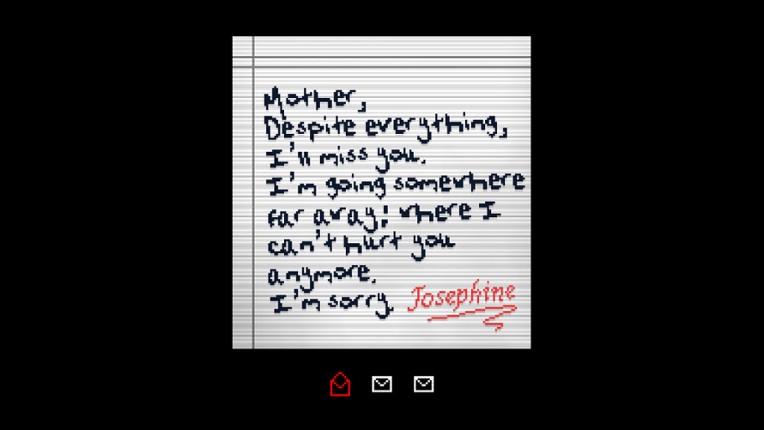 Mother,
Despite everything,
I'll miss you.
I'm going somewhere
far away; where I
can't hurt you
anymore.
I'm sorry. Josephine